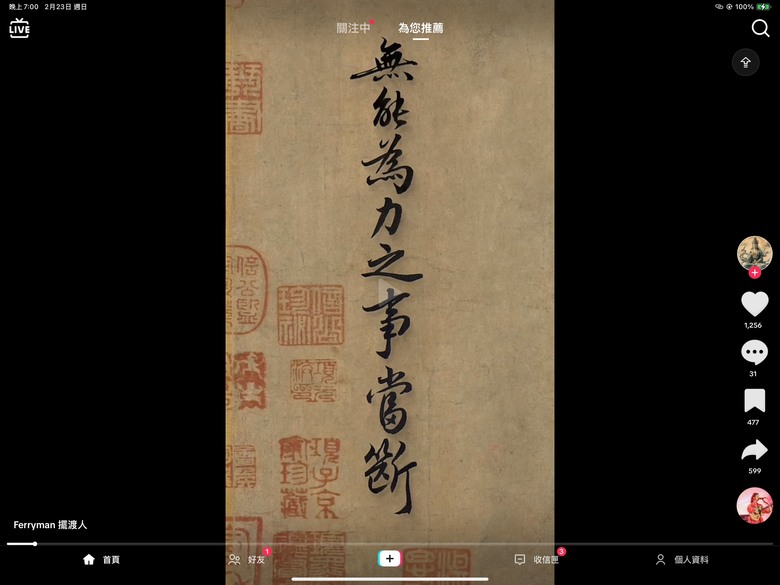 晚上7:00 2月23日 週日
100%
LIVE
關注中
為您推薦
無能為力之事當斷
1,256
31
477
599
Ferryman 擺渡人
首頁
好友
1
收信匣
3
個人資料